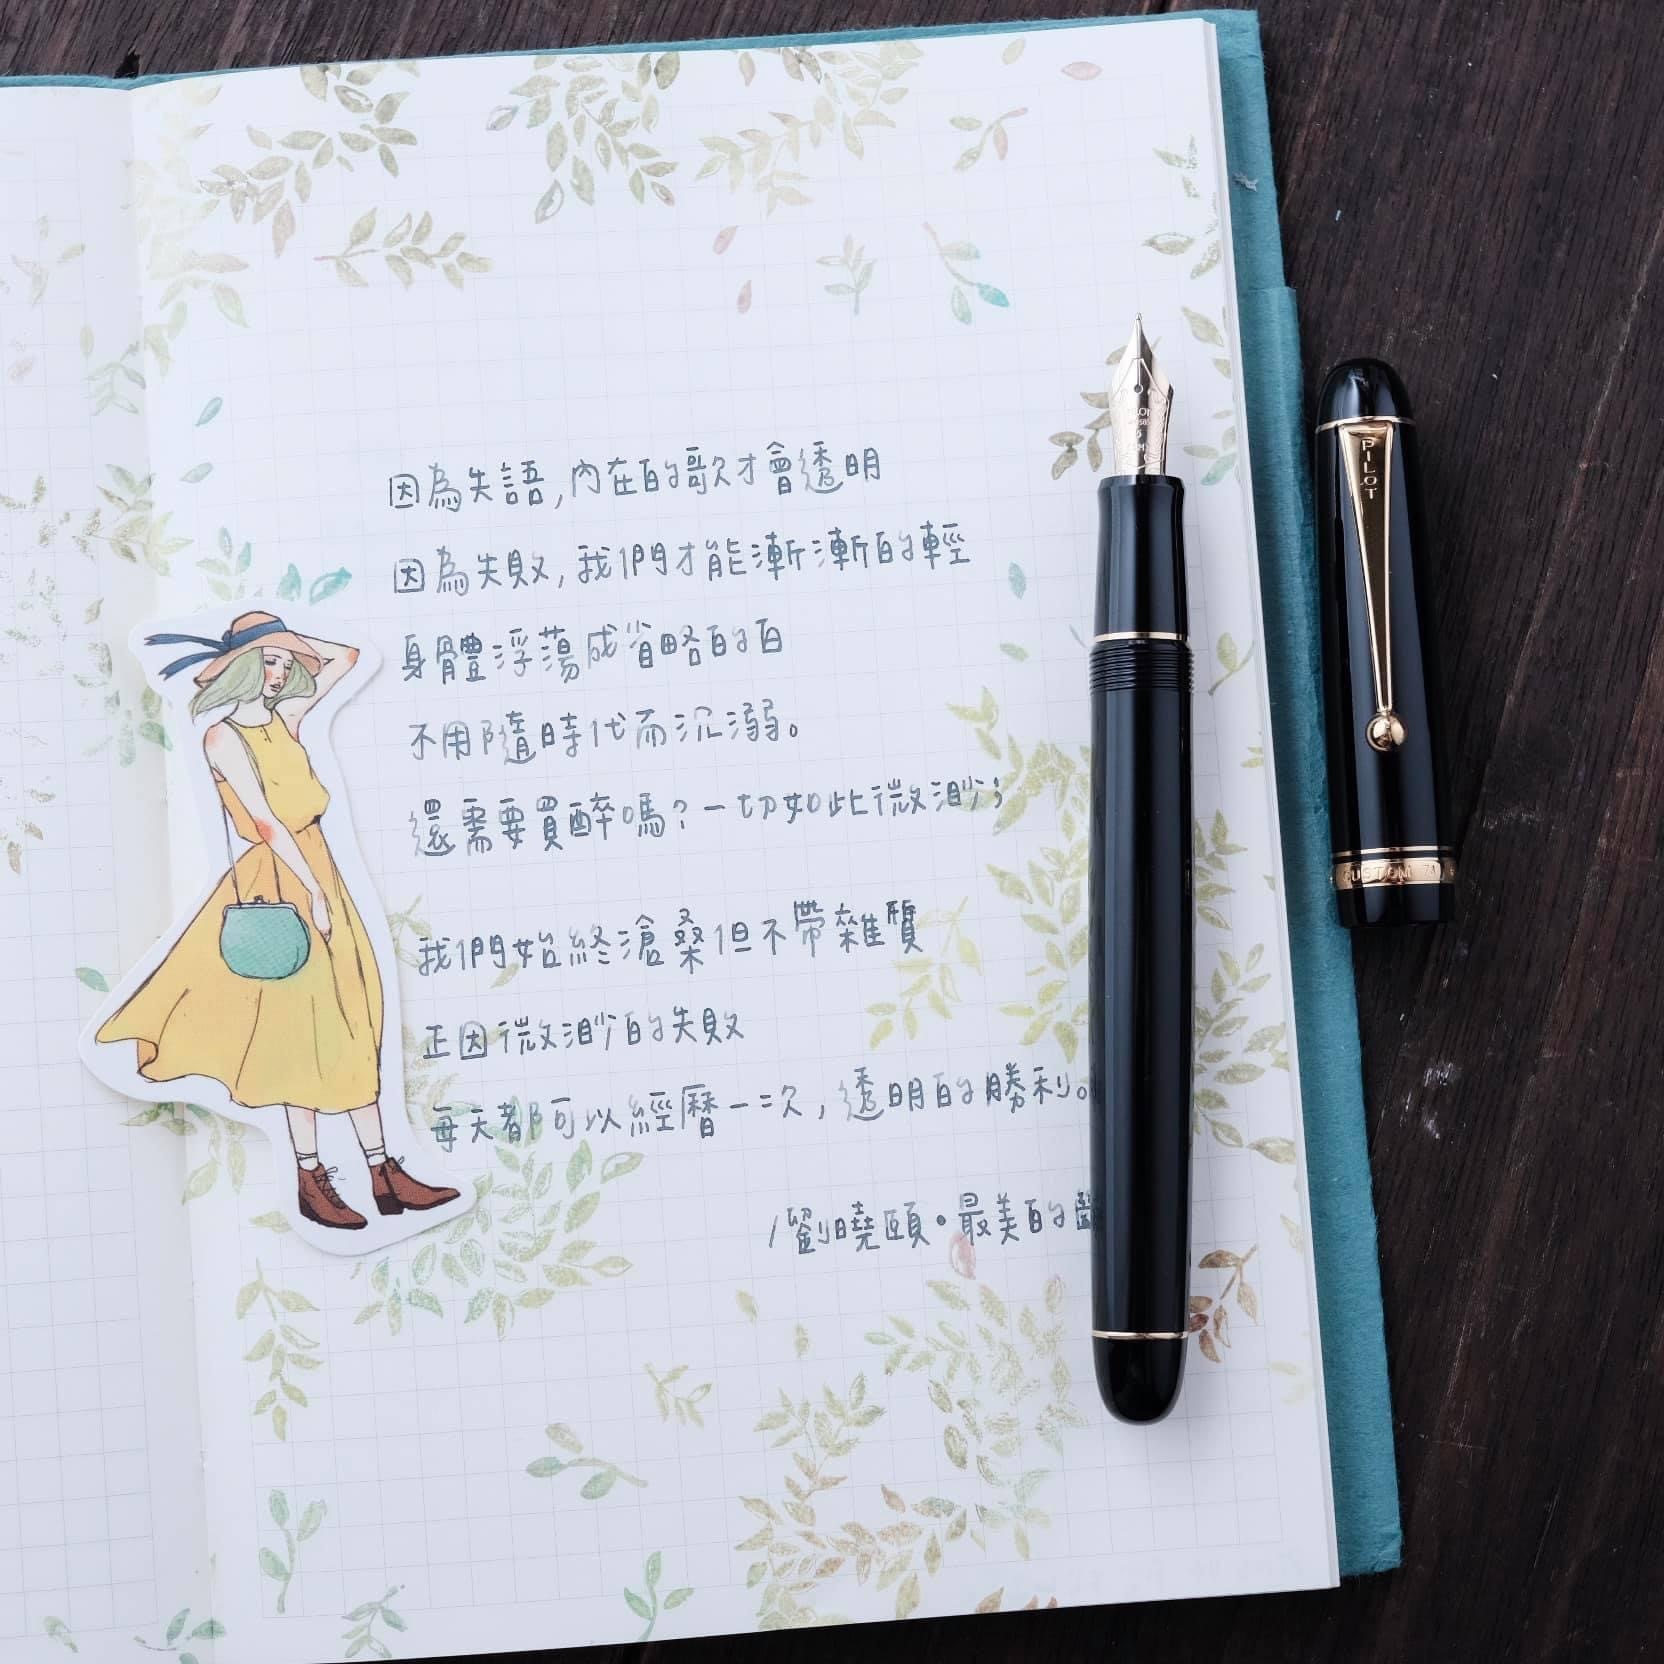 因為失語,內在的歌才會透明
因為失敗,我們才能漸漸的輕
身體浮蕩成省略的白
不用隨時代而沉溺。
還需要買醉嗎?一切如此微渺;
我們始終滄桑但不帶雜質
正因微渺的失敗
每天都可以經曆一二次,透明的勝利。
/劉曉頤•最美的
PILOT
CUSTOM 74